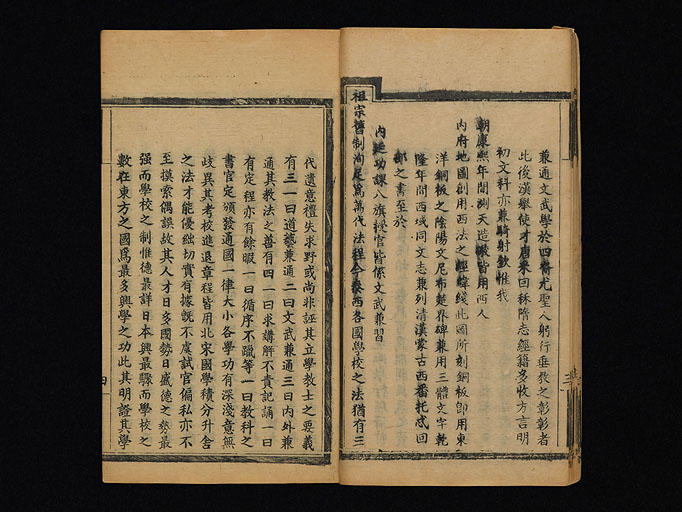 兼通文武學於四裔尤聖人躬行垂教之彰彰者
此後漢舉使才唐來回秣隋志經籍多收方言明
初文科亦兼騎射欽惟我
朝康熙年間測天造皆用西人
內府地圖創用西法之經緯綫此圖所刻銅板卽用東
洋銅板之陰陽文尼布楚界碑兼用三體文字乾
隆年間西域同文志兼列清漢蒙古西番托忒回
部之書至於
內廷功課八旗授官皆係文武兼習
祖宗舊制洵足為萬代法程今泰西各國學校之法猶有三
代遺意禮失求野或尚非誣其立學教士之要義
有三一曰道藝兼通二曰文武兼通三曰內外兼
通其教法之善有四一曰求講解不貴記誦一曰
有定程亦有餘暇一曰循序不躐等一曰教科之
書官定頒發通國一律大小各學功有深淺意無
歧異其考校進退章程皆用北宋國學積分升舍
之法才能優絀切實有據既不虞試官偏私亦不
至摸索偶誤故其人才日多國勢日盛德之勢最
強而學校之制惟德最詳日本興最驟而學校之
數在東方之國為最多興學之功此其明證其學
四